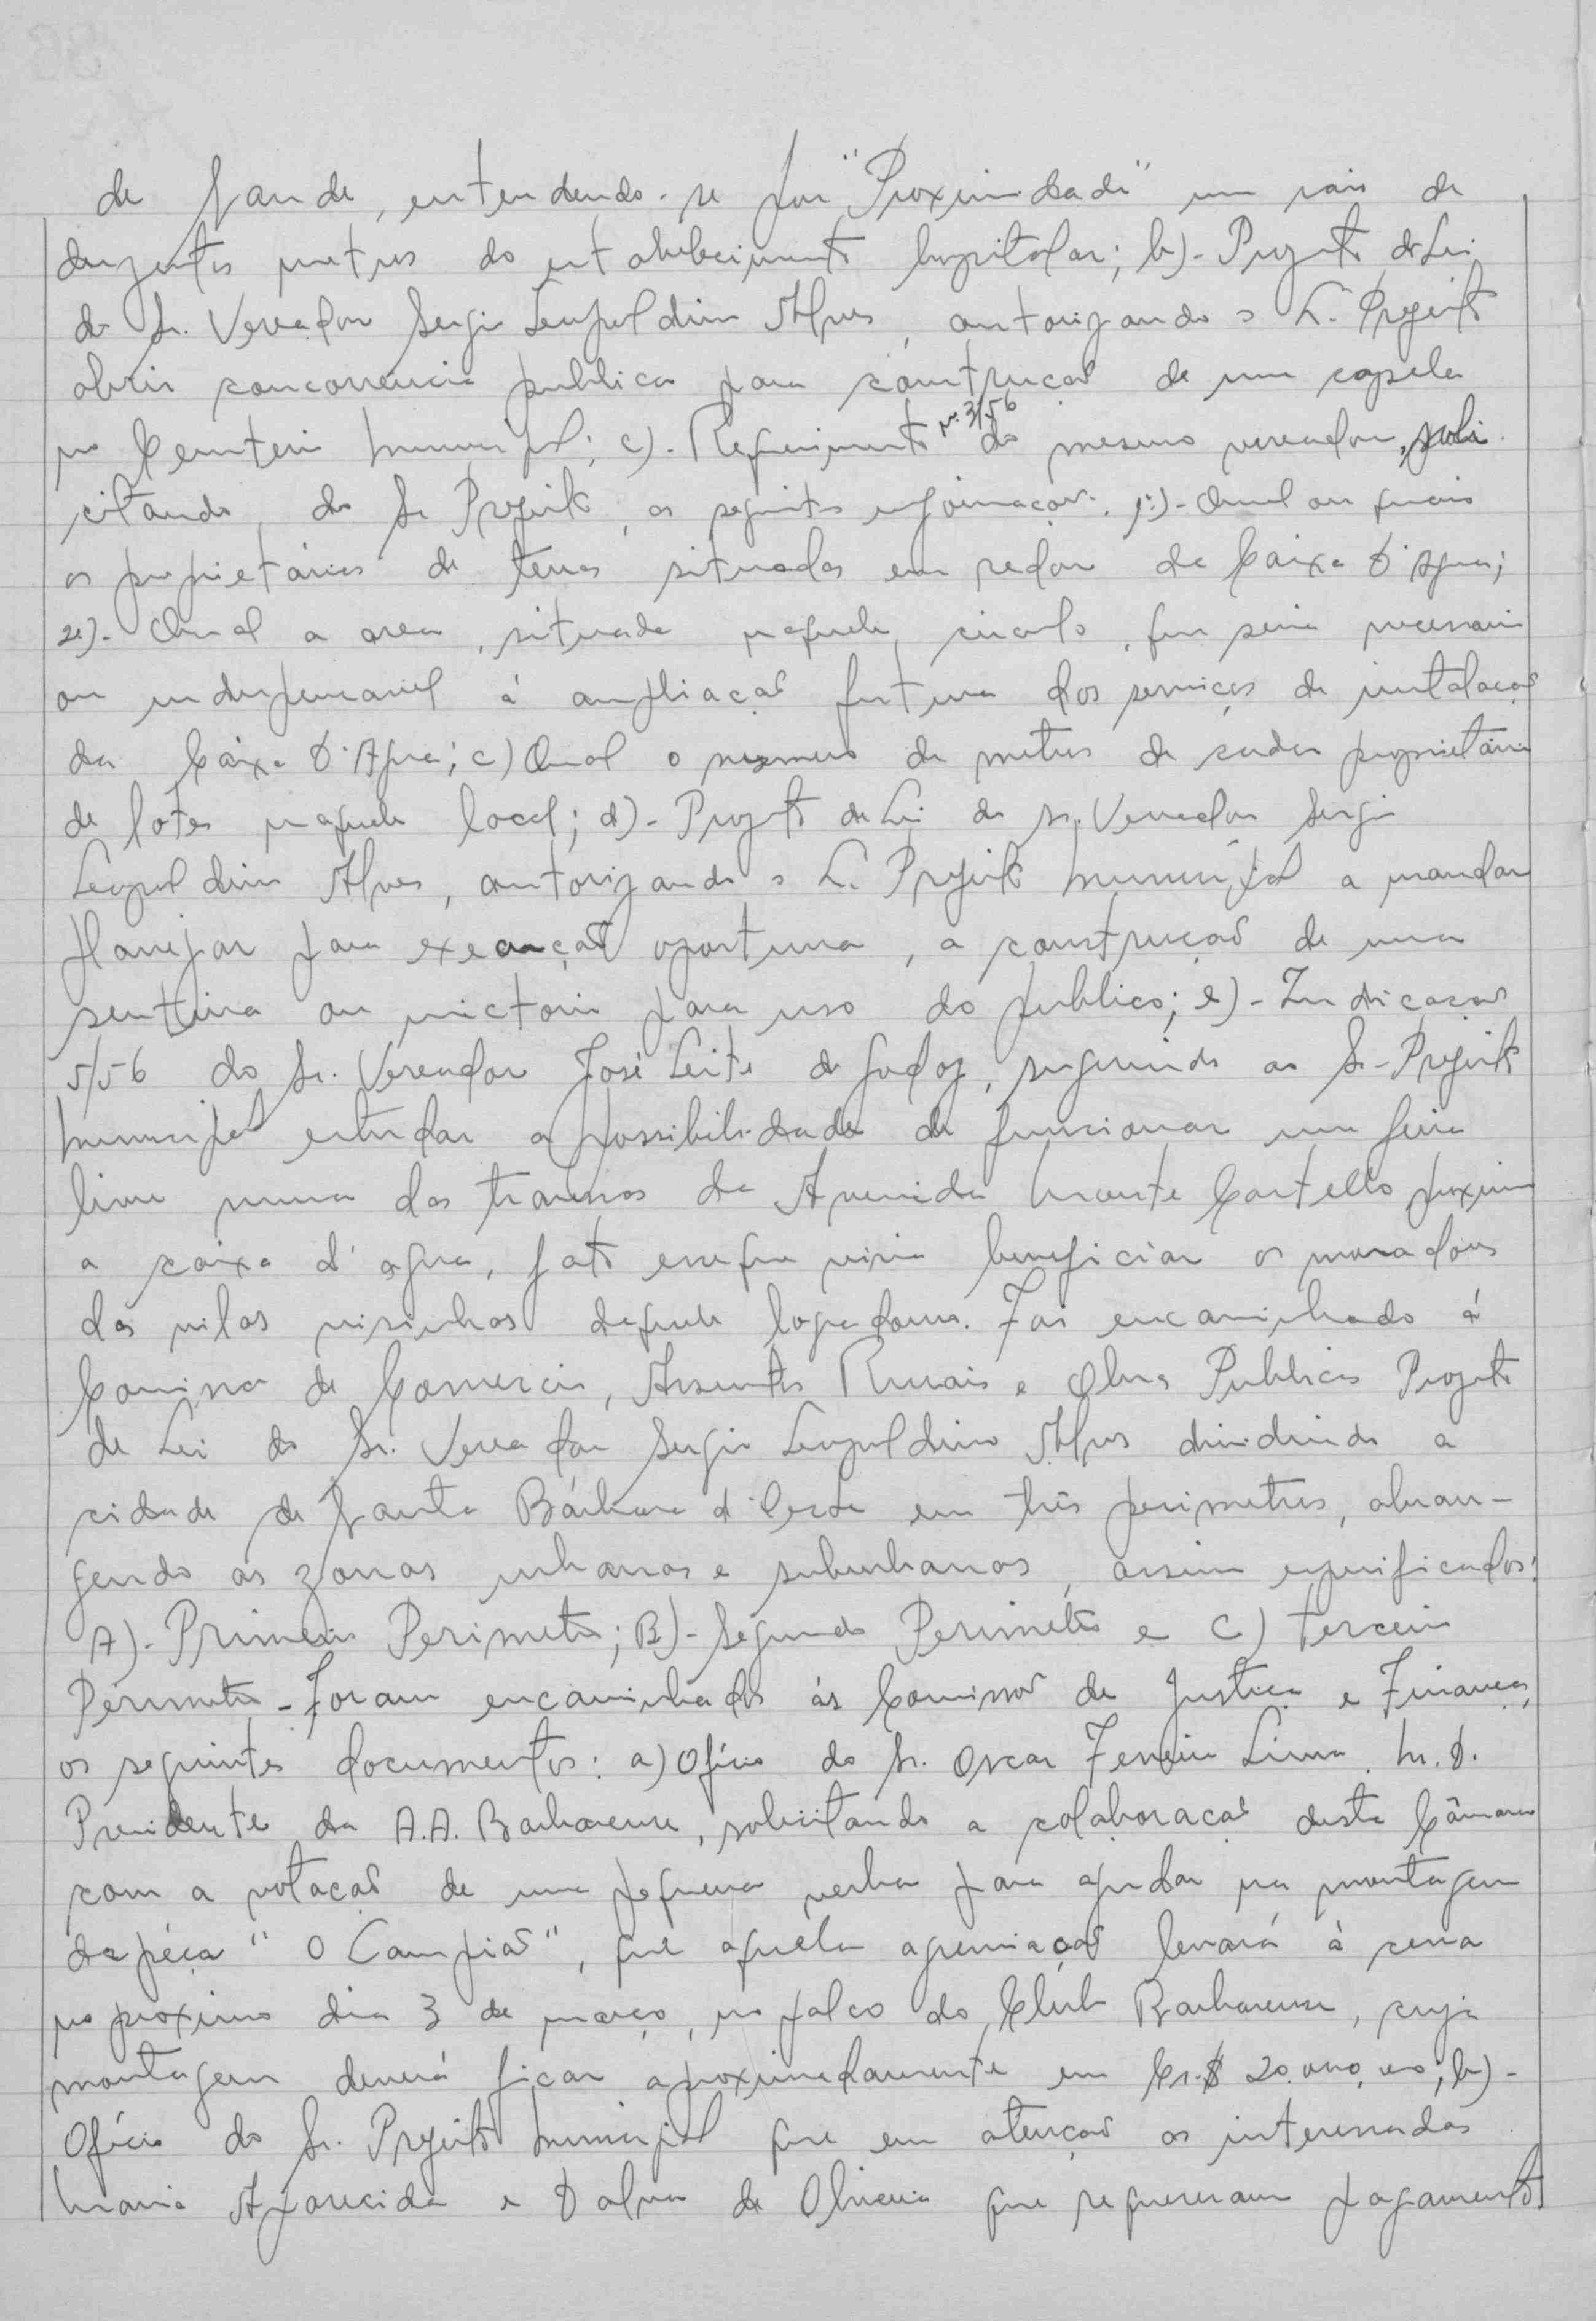 de Saude, entendendo-se por "Proximidade" um raio de
duzentos metros do estabelecimento hospitalar; b)- Projeto de Lei
do Sr. Vereador Sergio Leopoldino Alves, autorizando o Sr. Prefeito
abrir concorrencia publica para construção de uma capela
no Cemiterio Municipal; c)- Requerimento nº 3/56 do mesmo vereador, soli-
citando, do Sr. Prefeito, as seguintes informações: 1º)- Qual ou quais
os proprietários de terras situadas em redor da Caixa D'Agua;
2º)- Qual a area, situada naquele circulo, que seria necessaria
ou indispensavel á ampliação futura dos serviços de instalação
da Caixa D'Agua; c) Qual o numero de metros de cada proprietário
de lotes naquele local; d)- Projeto de Lei do sr. Vereador Sergio
Leopoldino Alves, autorizando o Sr. Prefeito Municipal a mandar
planejar para execução oportuna, a construção de uma
sentina ou mictorio para uso do publico; e)- Indicação
5/56 do Sr. Vereador José Leite de Godoy, sugerindo ao Sr. Prefeito
Municipal estudar a possibilidade de funcionar uma feira
livre numa das travessas da Avenida Monte Castello proximo
a caixa d'agua, fato esse que viria beneficiar os moradores
das vilas visinhas daquele logradouro. Foi encaminhado á
Comissão de Comercio, Assuntos Rurais e Obras Publicas Projeto
de Lei do Sr. Vereador Sergio Leopoldino Alves dividindo a
cidade de Santa Bárbara d'Oeste em três perimetros, abran-
gendo as zonas urbanas e suburbanas, assim especificados:
A)- Primeiro Perimetro; B)- Segundo Perimetro e C) terceiro
Perimetro - Foram encaminhados ás Comissões de Justiça e Finanças,
os seguintes documentos: a) Oficio do Sr. Oscar Ferreira Lima M.D.
Presidente da A.A. Barbarense, solicitando a colaboração desta Câmara
com a votação de uma pequena verba para ajudar na montagem
da péça "O Campião", que aquela agremiação levará à cena
no proximo dia 3 de março, no palco do Club Barbarense, cuja
montagem deverá ficar aproximadamente em Cr.$ 20.000,00; b)-
Ofício do Sr. Prefeito Municipal que em atenção as interessadas
Maria Aparecida e Dalva de Oliveira que requereram pagamento